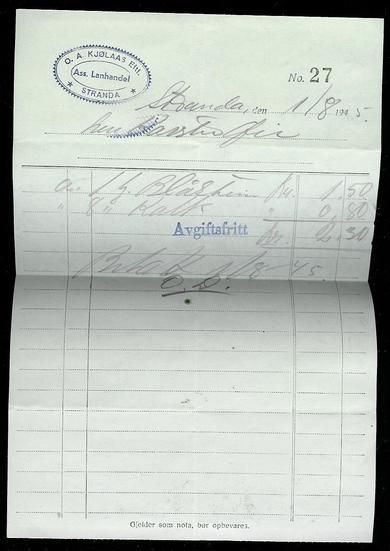 O. A. KJØLAAS Eftf.
Ass. Lanhandel
STRANDA
No. 27
Stranda, den 1/8 1945.
Herr
1 Blåstein Kr. 1,50
" 8 " Kalk " 0,80
Avgiftsfritt Kr. 2,30
Betalt 1/8-45.
Gjelder som nota, bør opbevares.